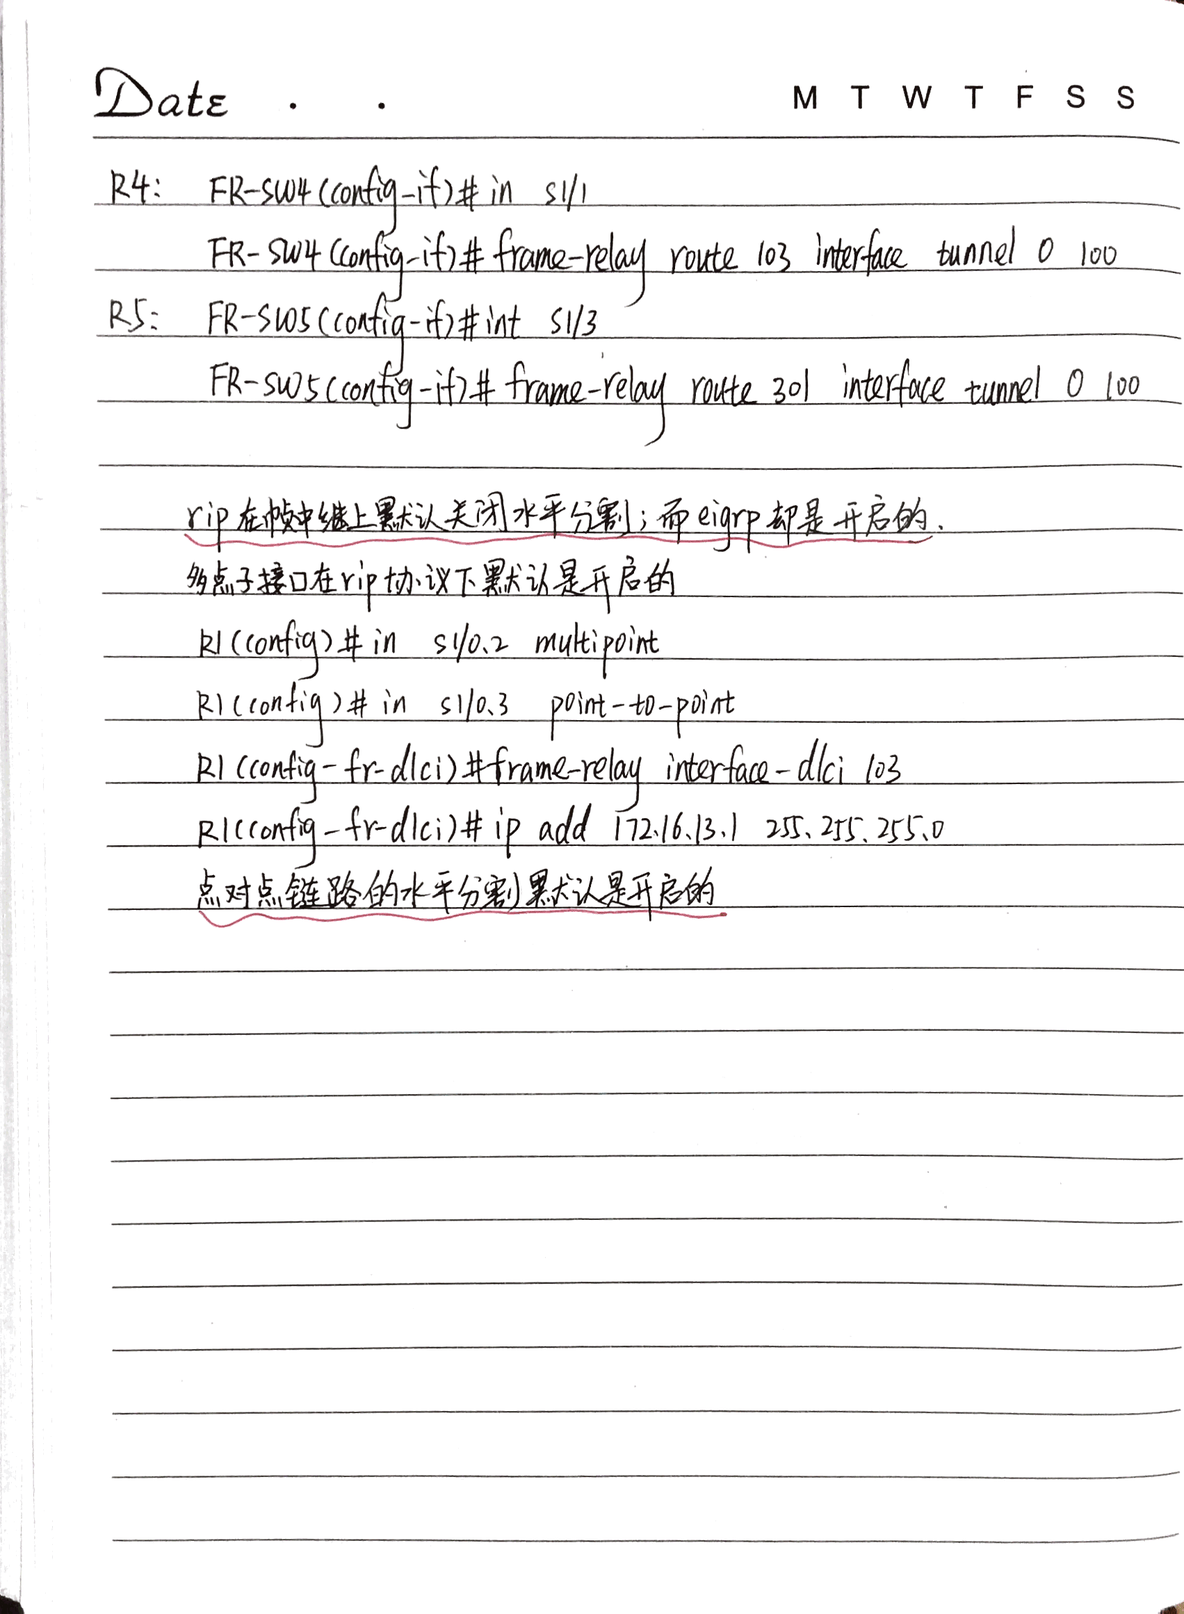 Date . .
M T W T F S S
R4: FR-SW4(config-if)# in s1/1
FR-SW4(config-if)# frame-relay route 103 interface tunnel 0 100
R5: FR-SW5(config-if)#int s1/3
FR-SW5(config-if)# frame-relay route 301 interface tunnel 0 100
rip在帧中继上默认关闭水平分割；而eigrp却是开启的.
多点子接口在rip协议下默认是开启的
R1(config)# in s1/0.2 multipoint
R1(config)# in s1/0.3 point-to-point
R1(config-fr-dlci)#frame-relay interface-dlci 103
R1(config-fr-dlci)# ip add 172.16.13.1 255.255.255.0
点对点链路的水平分割默认是开启的